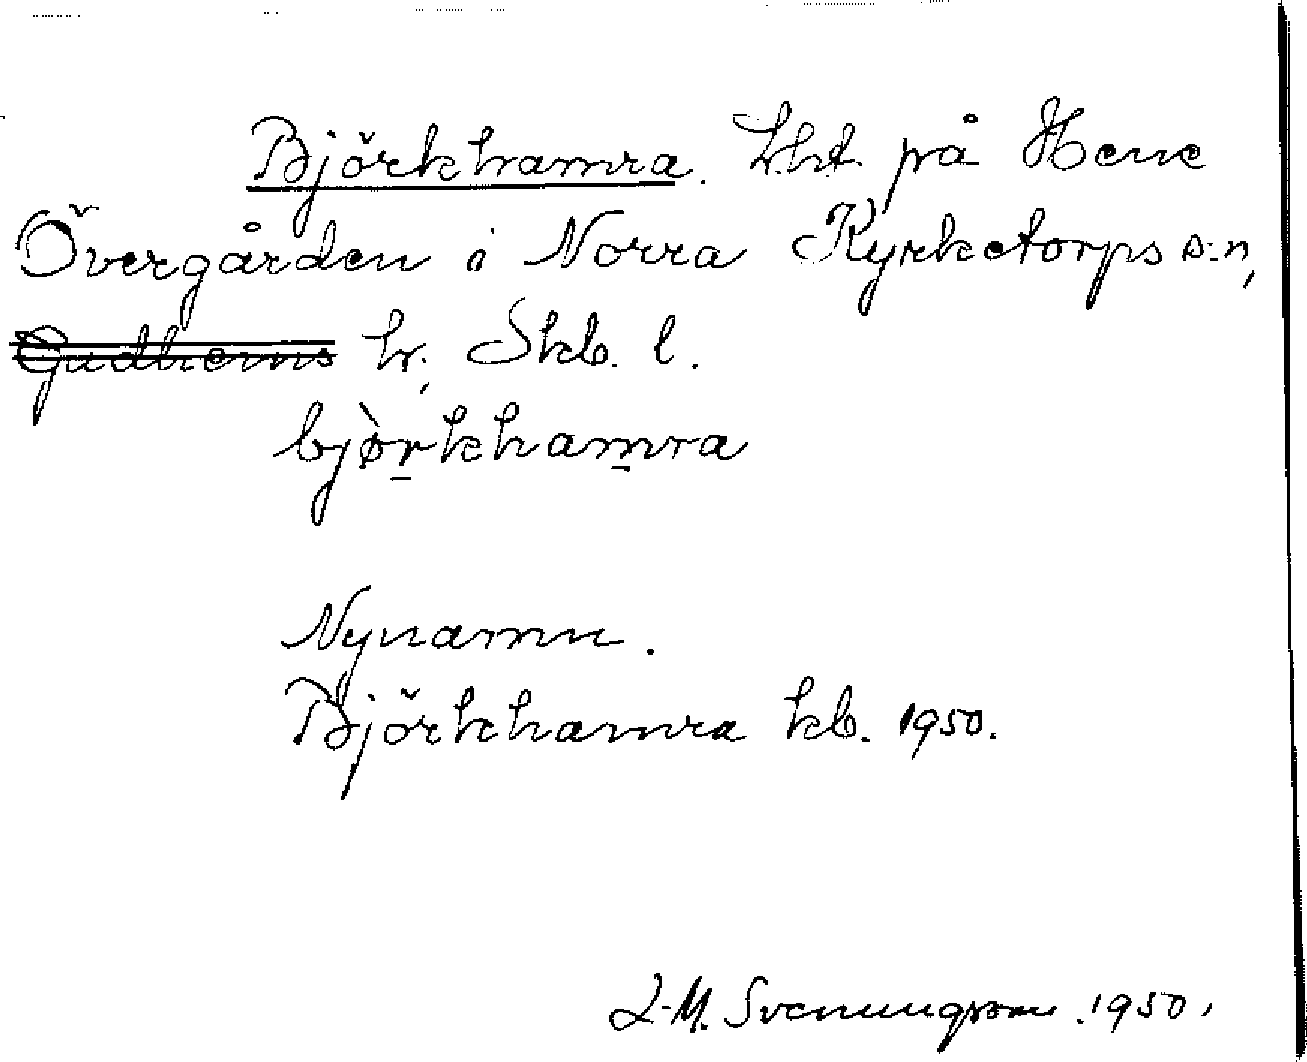 Björkhamra. Lht. på Hene
Övergården i Norra Kyrketorps s:n,
Gudhems hr, Skb. l.
bjø̀r̠kham̠ra
Nynamn.
Björkhamra kb. 1950.
L-M. Svenungsson. 1950.